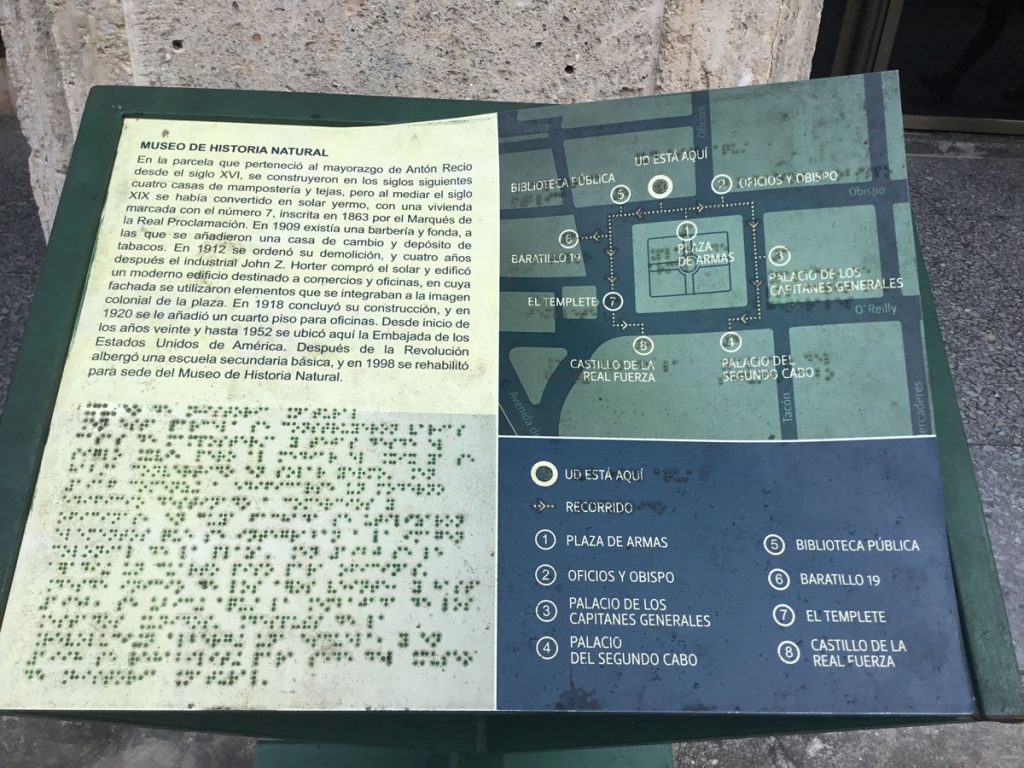 MUSEO DE HISTORIA NATURAL
En la parcela que perteneció al mayorazgo de Antón Recio
desde el siglo XVI, se construyeron en los siglos siguientes
cuatro casas de mampostería y tejas, pero al mediar el siglo
XIX se había convertido en solar yermo, con una vivienda
marcada con el número 7, inscrita en 1863 por el Marqués de
la Real Proclamación. En 1909 existía una barbería y fonda, a
las que se añadieron una casa de cambio y depósito de
tabacos. En 1912 se ordenó su demolición, y cuatro años
después el industrial John Z. Horter compró el solar y edificó
un moderno edificio destinado a comercios y oficinas, en cuya
fachada se utilizaron elementos que se integraban a la imagen
colonial de la plaza. En 1918 concluyó su construcción, y en
1920 se le añadió un cuarto piso para oficinas. Desde inicio de
los años veinte y hasta 1952 se ubicó aquí la Embajada de los
Estados Unidos de América. Después de la Revolución
albergó una escuela secundaria básica, y en 1998 se rehabilitó
para sede del Museo de Historia Natural.
Justiz
Oficios
UD ESTÁ AQUÍ
BIBLIOTECA PÚBLICA
5
2 OFICIOS Y OBISPO
Obispo
1
PLAZA
DE ARMAS
6
BARATILLO 19
3
PALACIO DE LOS
CAPITANES GENERALES
EL TEMPLETE 7
O'Reilly
8
CASTILLO DE LA
REAL FUERZA
4
PALACIO DEL
SEGUNDO CABO
Avenida del
Tacón
ercaderes
UD ESTÁ AQUÍ
RECORRIDO
1 PLAZA DE ARMAS
2 OFICIOS Y OBISPO
3 PALACIO DE LOS
CAPITANES GENERALES
4 PALACIO
DEL SEGUNDO CABO
5 BIBLIOTECA PÚBLICA
6 BARATILLO 19
7 EL TEMPLETE
8 CASTILLO DE LA
REAL FUERZA